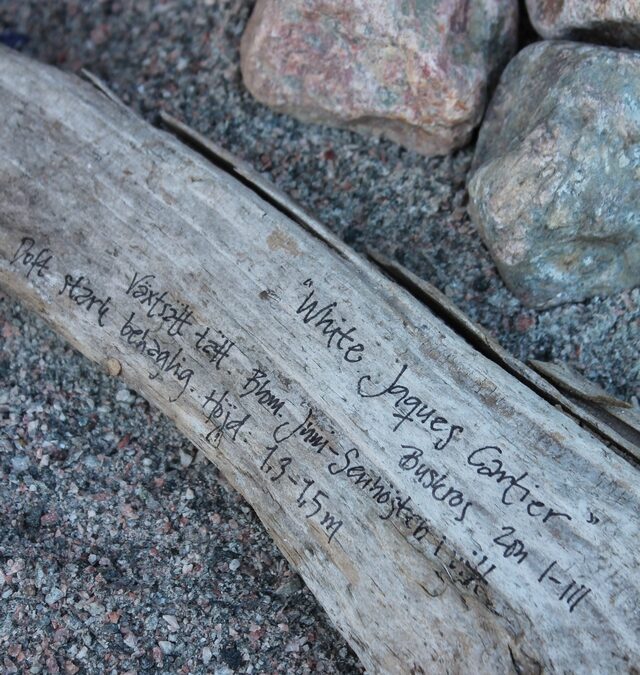 "White Jaques Cartier"
Buskros zon I-III
Växtsätt tätt. Blom. Juni-Senhösten i vitt
Doft stark behaglig. Höjd. 1,3-1,5m